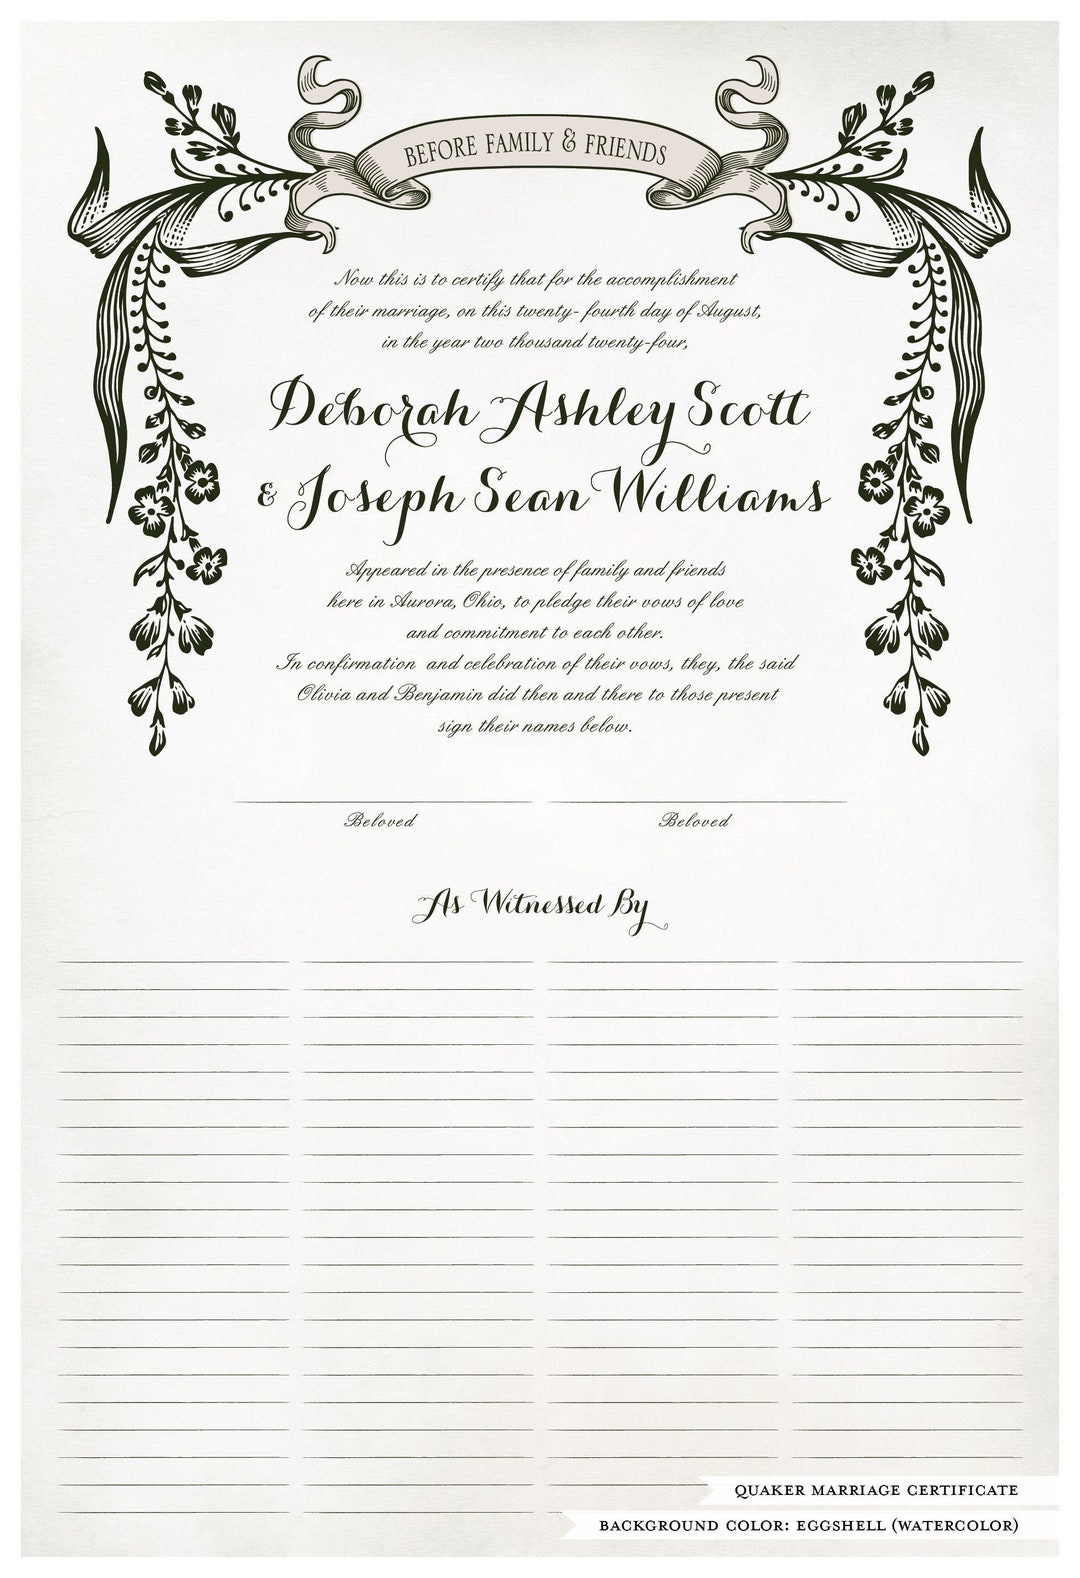 BEFORE FAMILY & FRIENDS
Now this is to certify that for the accomplishment
of their marriage, on this twenty- fourth day of August,
in the year two thousand twenty-four,
Deborah Ashley Scott
& Joseph Sean Williams
Appeared in the presence of family and friends
here in Aurora, Ohio, to pledge their vows of love
and commitment to each other.
In confirmation and celebration of their vows, they, the said
Olivia and Benjamin did then and there to those present
sign their names below.
Beloved Beloved
As Witnessed By
QUAKER MARRIAGE CERTIFICATE
BACKGROUND COLOR: EGGSHELL (WATERCOLOR)